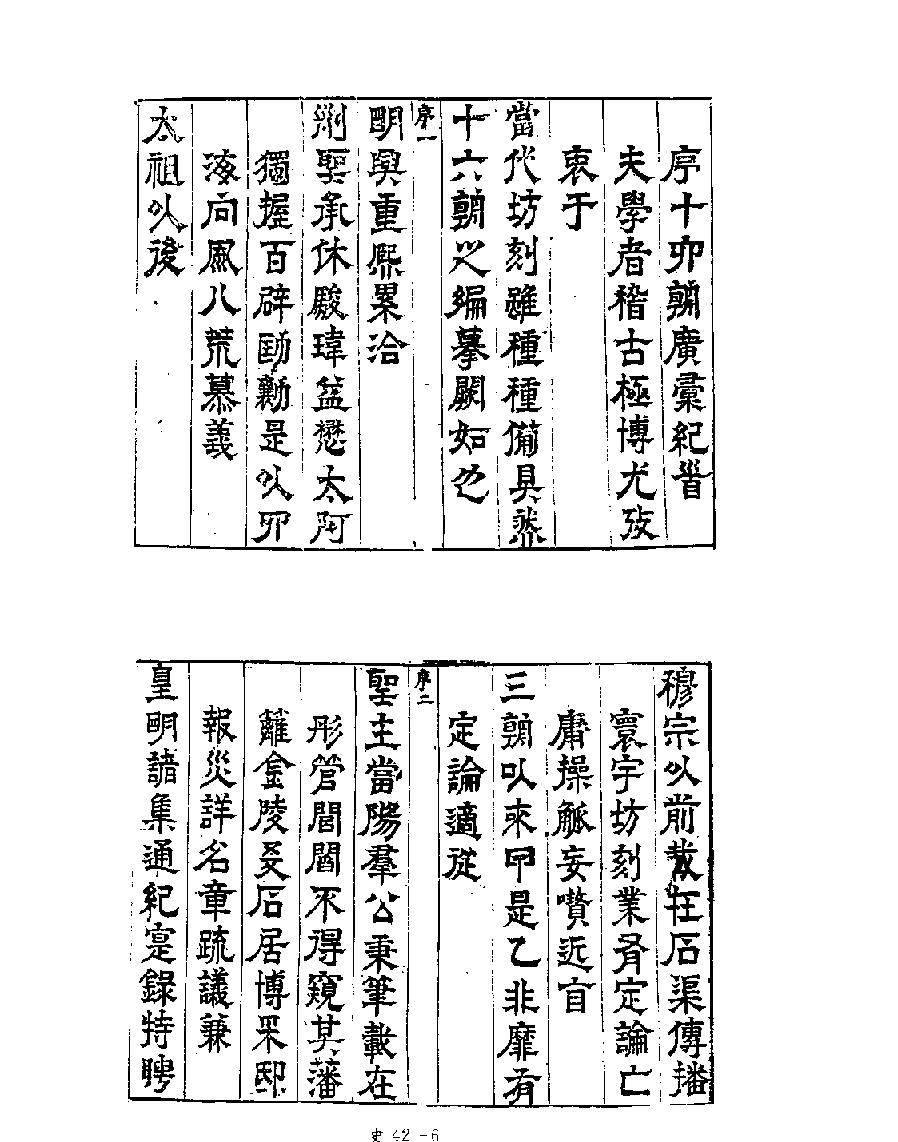 序十六朝廣彙紀首
夫學者稽古極博尤攷
衷于
當代坊刻雖種種備具然
十六朝之編摹闕如也
序一
明興重熙累洽
列聖承休駿瑋益懋太阿
獨握百辟勛是以四
海向風八荒慕義
太祖以後
穆宗以前載在石渠傳播
寰宇坊刻業有定論亡
庸操觚妄贊近百
三朝以來甲是乙非靡有
定論適從
序二
聖主當陽羣公秉筆載在
彤管閭閻不得窺其藩
籬金陵石居博采邸
報災詳名章疏議兼
皇明諸集通紀寔錄特聘
史 42-6